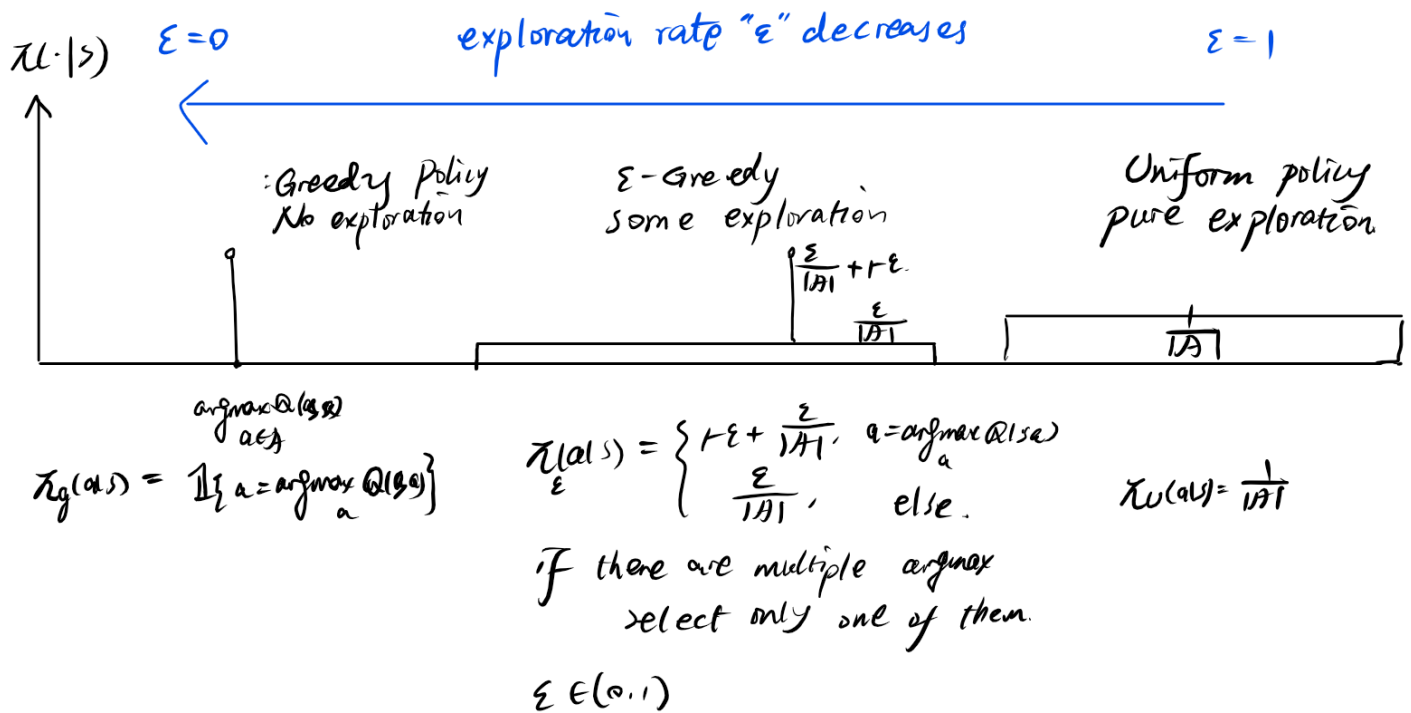 π(·|s) ε=0 exploration rate "ε" decreases ε=1
:Greedy Policy
No exploration
ε-Greedy
some exploration
Uniform policy
pure exploration.
ε/|A| + 1-ε.
ε/|A|
1/|A|
argmax Q(s,a)
a∈A
π_g(a|s) = 𝟙{a=argmax_a Q(s,a)}
π_ε(a|s) = { 1-ε + ε/|A|, a=argmax_a Q(s,a)
ε/|A|, else.
π_U(a|s)= 1/|A|
if there are multiple argmax
select only one of them.
ε ∈(0,1)